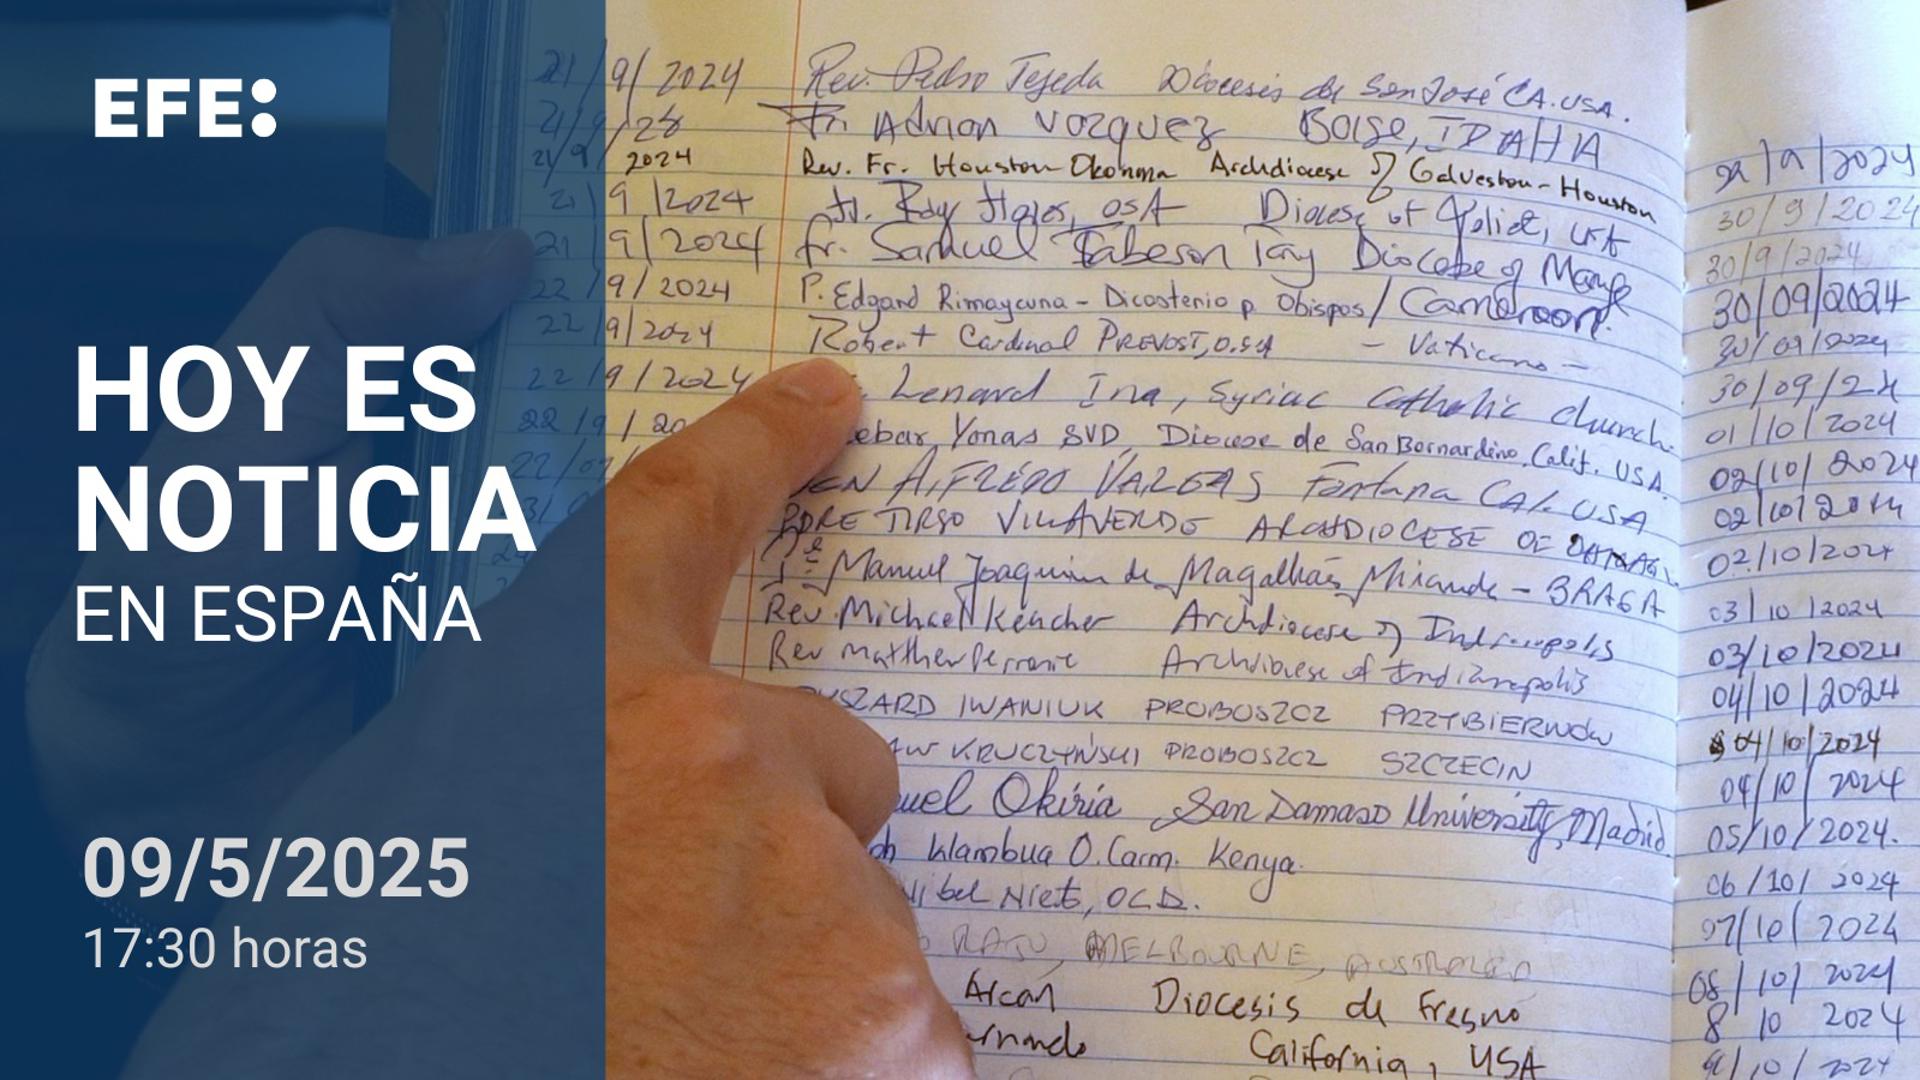 EFE:
HOY ES
NOTICIA
EN ESPAÑA
09/5/2025
17:30 horas
21/9/2024 Rev. Pedro Tejeda Diocesis de San José CA. USA.
21/9/ Fr. Adrian Vazquez Boise, IDAHA
21/9 2024 Rev. Fr. Houston Okonma Archdiocese of Galveston-Houston
21/9/2024 Fr. Ray Flores, OSA Diocese of Joliet, USA
21/9/2024 fr. Samuel Tabeson Tany Diocese of
22/9/2024 P. Edgard Rimaycuna - Dicasterio p. Obispos/ Cameroon.
22/9/2024 Robert Cardinal PREVOST, O.S.A - Vaticano -
22/9/2024 Lenard Ina, Syriac Catholic church.
22/9/20 Yonas SVD, Diocese de San Bernardino, Calif. USA.
22/ ALFREDO VARGAS Fontana CAL. USA
PDRE TIRSO VILLAVERDE ARCHDIOCESE OF
Manuel Joaquim de Magalhães Miranda - BRAGA
Rev. Michael Keucher Archdiocese of Indianapolis
Rev Matthew Perronie Archdiocese of Indianapolis
IWANIUK PROBOSZCZ
KRUCZYŃSKI PROBOSZCZ SZCZECIN
Okiria San Damaso University, Madrid.
Wambua O.Carm. Kenya.
Nieto, OCD.
RAJU, MELBOURNE, AUSTRALIA
Arcan Diocesis de Fresno
California, USA
30/9/2024
30/9/2024
30/09/2024
30/09/2024
30/09/24
01/10/2024
02/10/2024
02/10/2024
02/10/2024
03/10/2024
03/10/2024
04/10/2024
04/10/2024
04/10/2024
05/10/2024.
06/10/2024
07/10/2024
08/10/2024
8 10 2024
/10/2024